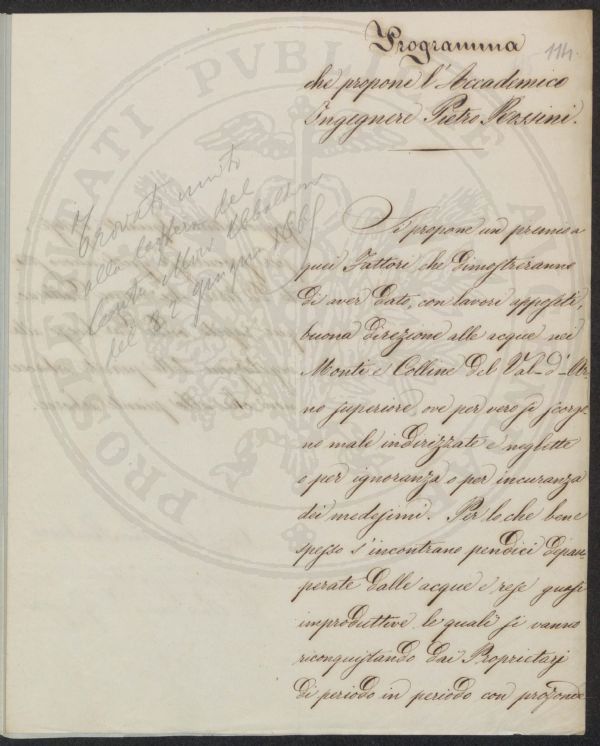 Programma
114.
che propone l'Accademico
Ingegnere Pietro Rossini.
Trovato unito
alla lettera del
Conte
del giugno
Si propone un premio a
quei Fattori che dimostreranno
di aver dato, con lavori appositi,
buona direzione alle acque nei
Monti e Colline del Val-d'Ar-
no superiore, ove per vero si scorgo-
no male indirizzate e neglette
o per ignoranza o per incuranza
dei medesimi. Per lo che bene
spesso s'incontrano pendici depau-
perate dalle acque e rese quasi
improduttive le quali si vanno
riconquistando dai Proprietarj
di periodo in periodo con profonde
PROSPERITATI PVBLICAE AVGENDAE